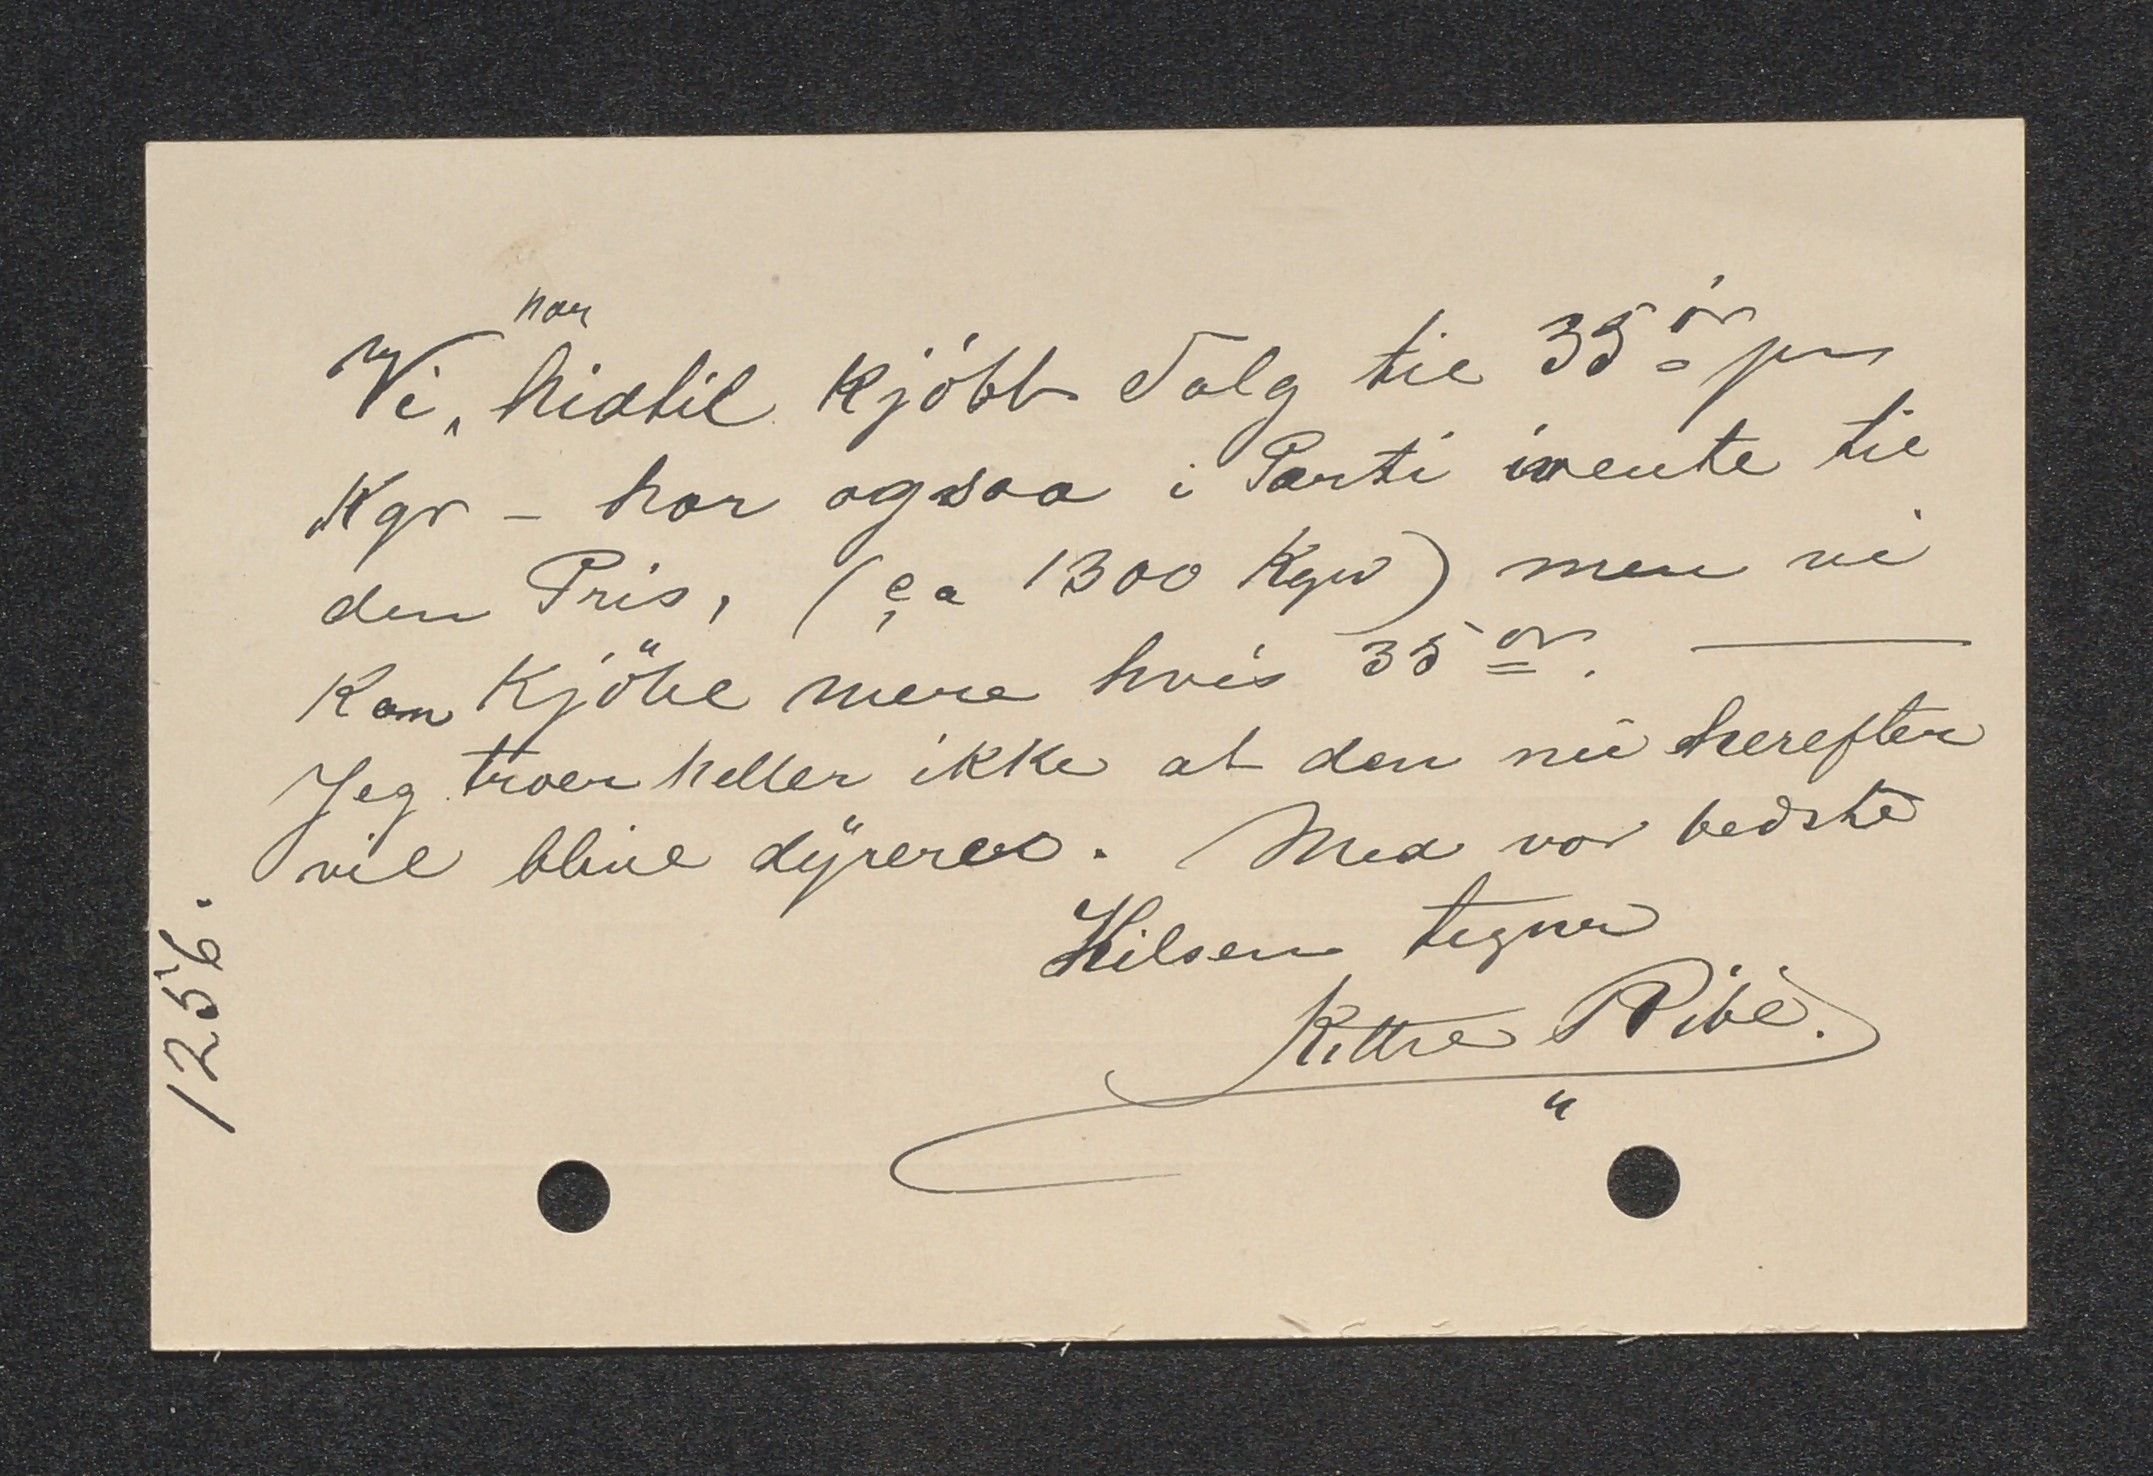 har
Vi, hidtil kjöbt Talg til 35 ör pr
Kgr - har ogsaa i Parti ivente til
den Pris, (ca 1300 Kgr) men vi
kan kjöbe mere hvis 35 ör.
Jeg troer heller ikke at den nu herefter
vil blive dyrere. Med vor bedste
Hilsen tegner
Ribe.
1256.